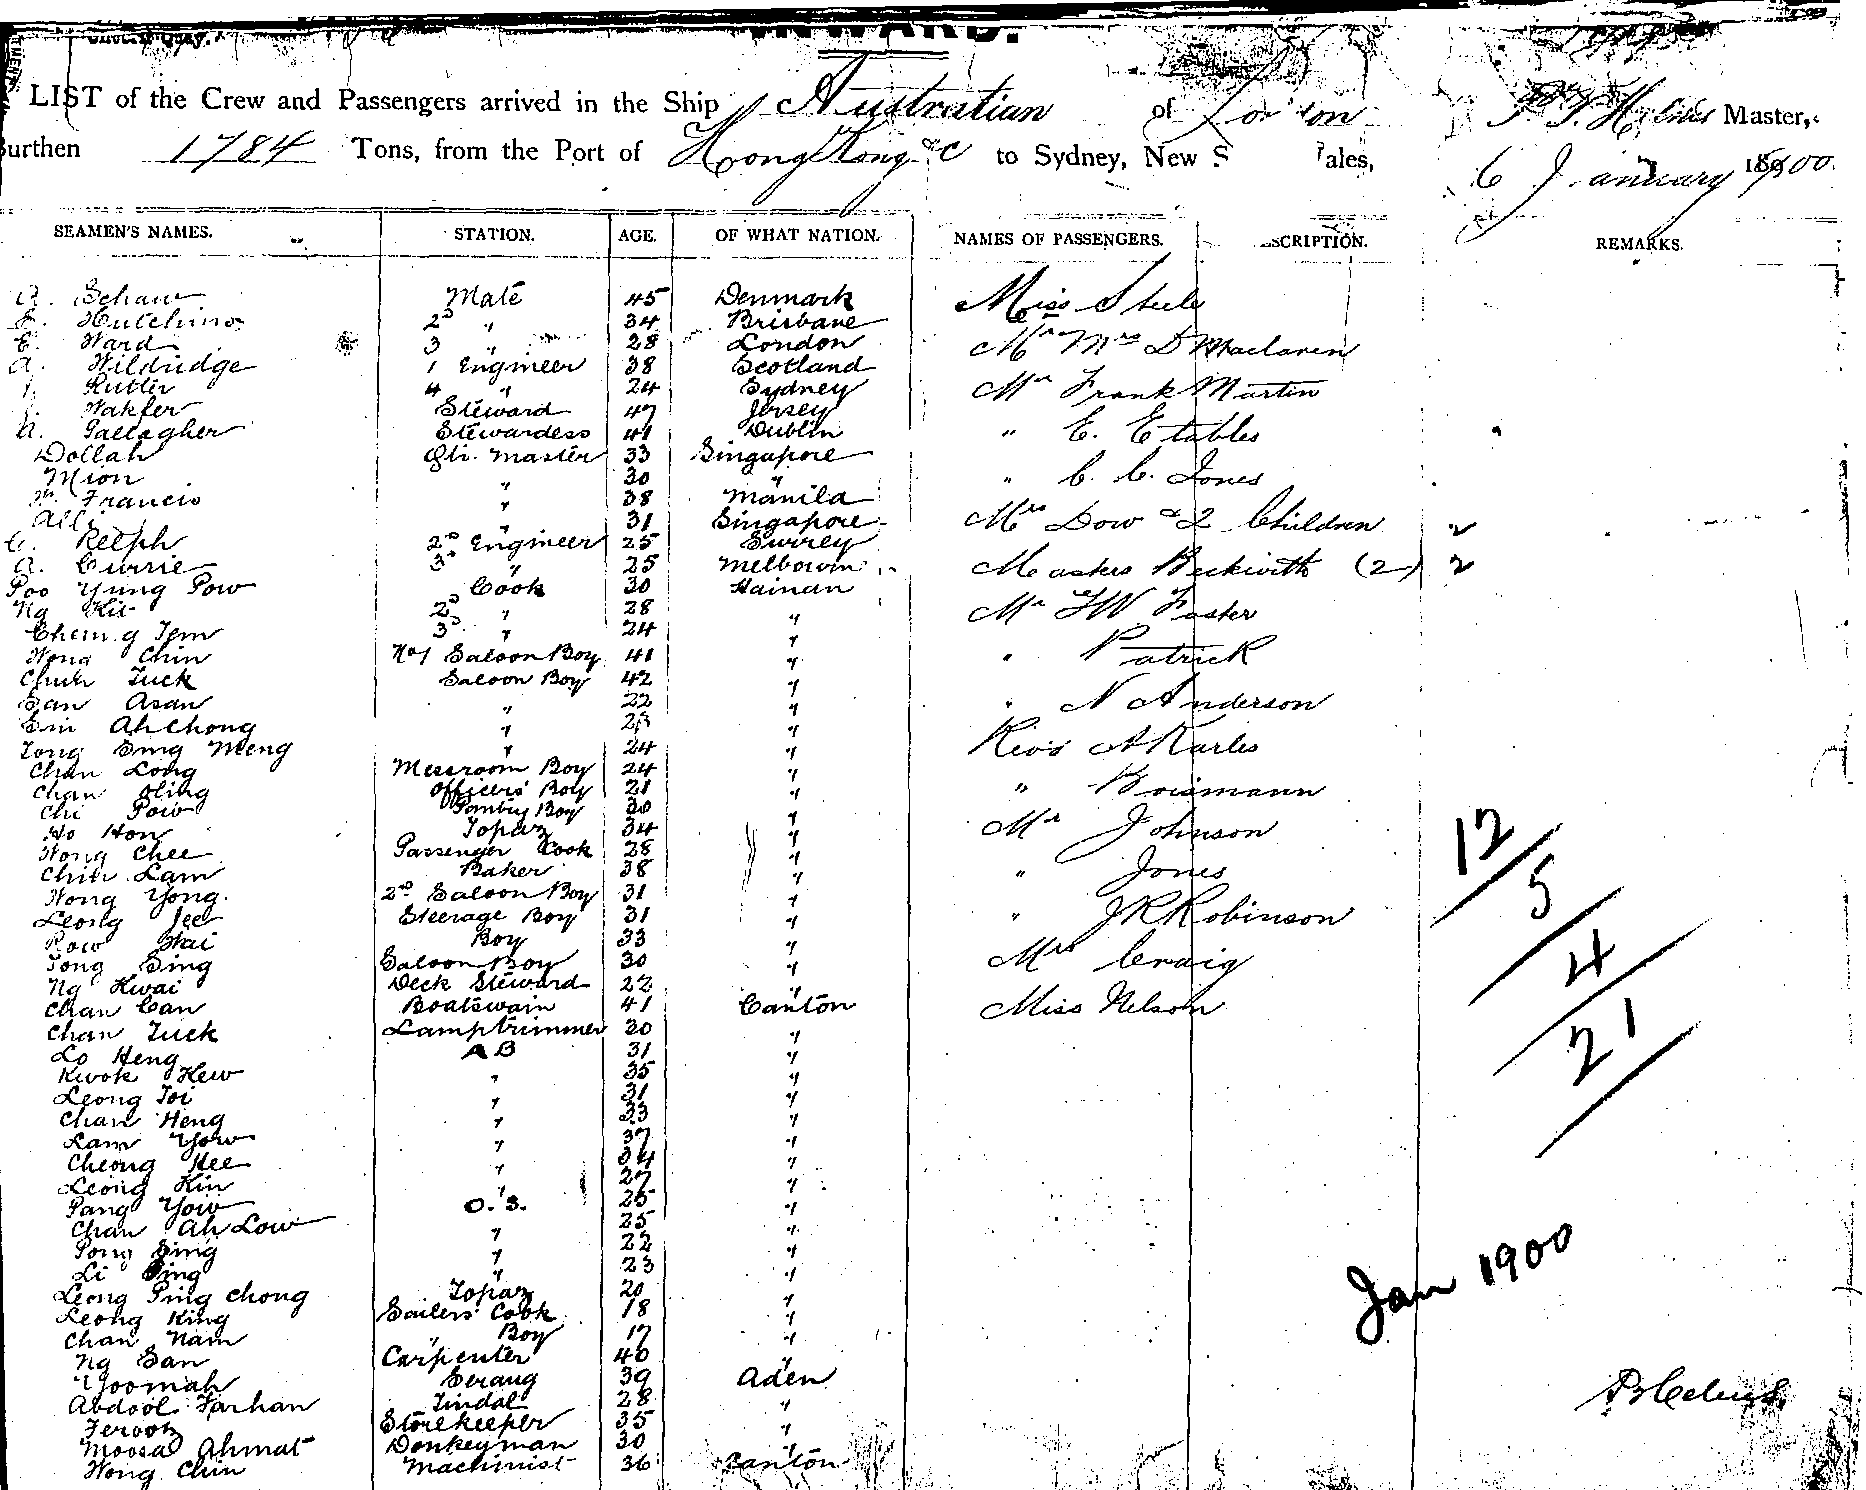 INWARD.
LIST of the Crew and Passengers arrived in the Ship Australian of London Master,
Burthen 1784 Tons, from the Port of Hong Kong &c to Sydney, New S ales, 6 January 1900
SEAMEN'S NAMES. STATION. AGE. OF WHAT NATION. NAMES OF PASSENGERS. SCRIPTION. REMARKS.
A. Schaw Mate 45 Denmark
Hutchins 2D " 34 Brisbane
E. Ward 3 " 28 London
A. Wildridge 1 Engineer 38 Scotland
Rutter 4 " 24 Sydney
Wakfer Steward 47 Jersey
A. Gallagher Stewardess 41 Dublin
Dollah Qtr. Master 33 Singapore
Mion " 30 "
Francis " 38 Manila
Alli " 31 Singapore
Relph 2D Engineer 25 Surrey
A. Currie 3D " 25 Melbourne
Poo Yung Pow Cook 30 Hainan
Ng Kit 2D " 28 "
Cheing Tem 3D " 24 "
Wong Chin No 1 Saloon Boy 41 "
Chuh Tuck Saloon Boy 42 "
San Asan " 22 "
Sin Ah Chong " "
Tong Sing Meng " 24 "
Chan Long Messroom Boy 24 "
Chan Oling Officers' Boy 21 "
Chi Pow Pantry Boy 30 "
Ho Hon Topaz 34 "
Wong Chee Passenger Cook 28 "
Chin Lam Baker 38 "
Wong Yong. 2D Saloon Boy 31 "
Leong Jee Steerage Boy 31 "
Row Wai Boy 33 "
Tong Sing Saloon Boy 30 "
Ng Kwai Deck Steward 22 "
Chan Can Boatswain 41 Canton
Chan Tuck Lamptrimmer 30 "
Lo Heng A B 31 "
Kwok Hew " 35 "
Leong Toi " 31 "
Chan Heng " 33 "
Lam Yow " 37 "
Cheong Hee " 34 "
Leong Kin " 27 "
Pang Yow O. S. 25 "
Chan Ah Low " 25 "
Pong Sing " 22 "
Li Sing " 23 "
Leong Ping Chong Topaz 20 "
Leong King Sailers' Cook 18 "
Chan Nam " Boy 17 "
Ng San Carpenter 40 "
Yoomah Serang 39 Aden
Abdool Farhan Tindal 28 "
Ferooz Storekeeper 35 "
Moosa Ahmat Donkeyman 30 "
Wong Chin Machinist 36 Canton
Miss Steele
Mr Mrs D Maclaren
Mr Frank Martin
" E. Etables
" C. C. Jones
Mrs Dow & 2 Children 2
Masters Beckwith (2) 2
Mr FW Foster
" Patrick
" N Anderson
Revs A Karles
" Boismann
Mr Johnson
" Jones
" JR Robinson
Mrs Craig
Miss Nelson
12
5
4
21
Jan 1900